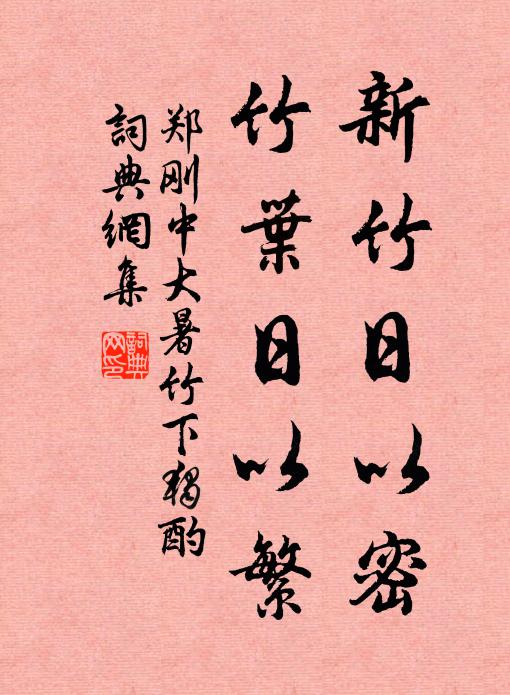 新竹日以密
竹葉日以繁
郑刚中大暑竹下獨酌
詞典網集
詞典
网印